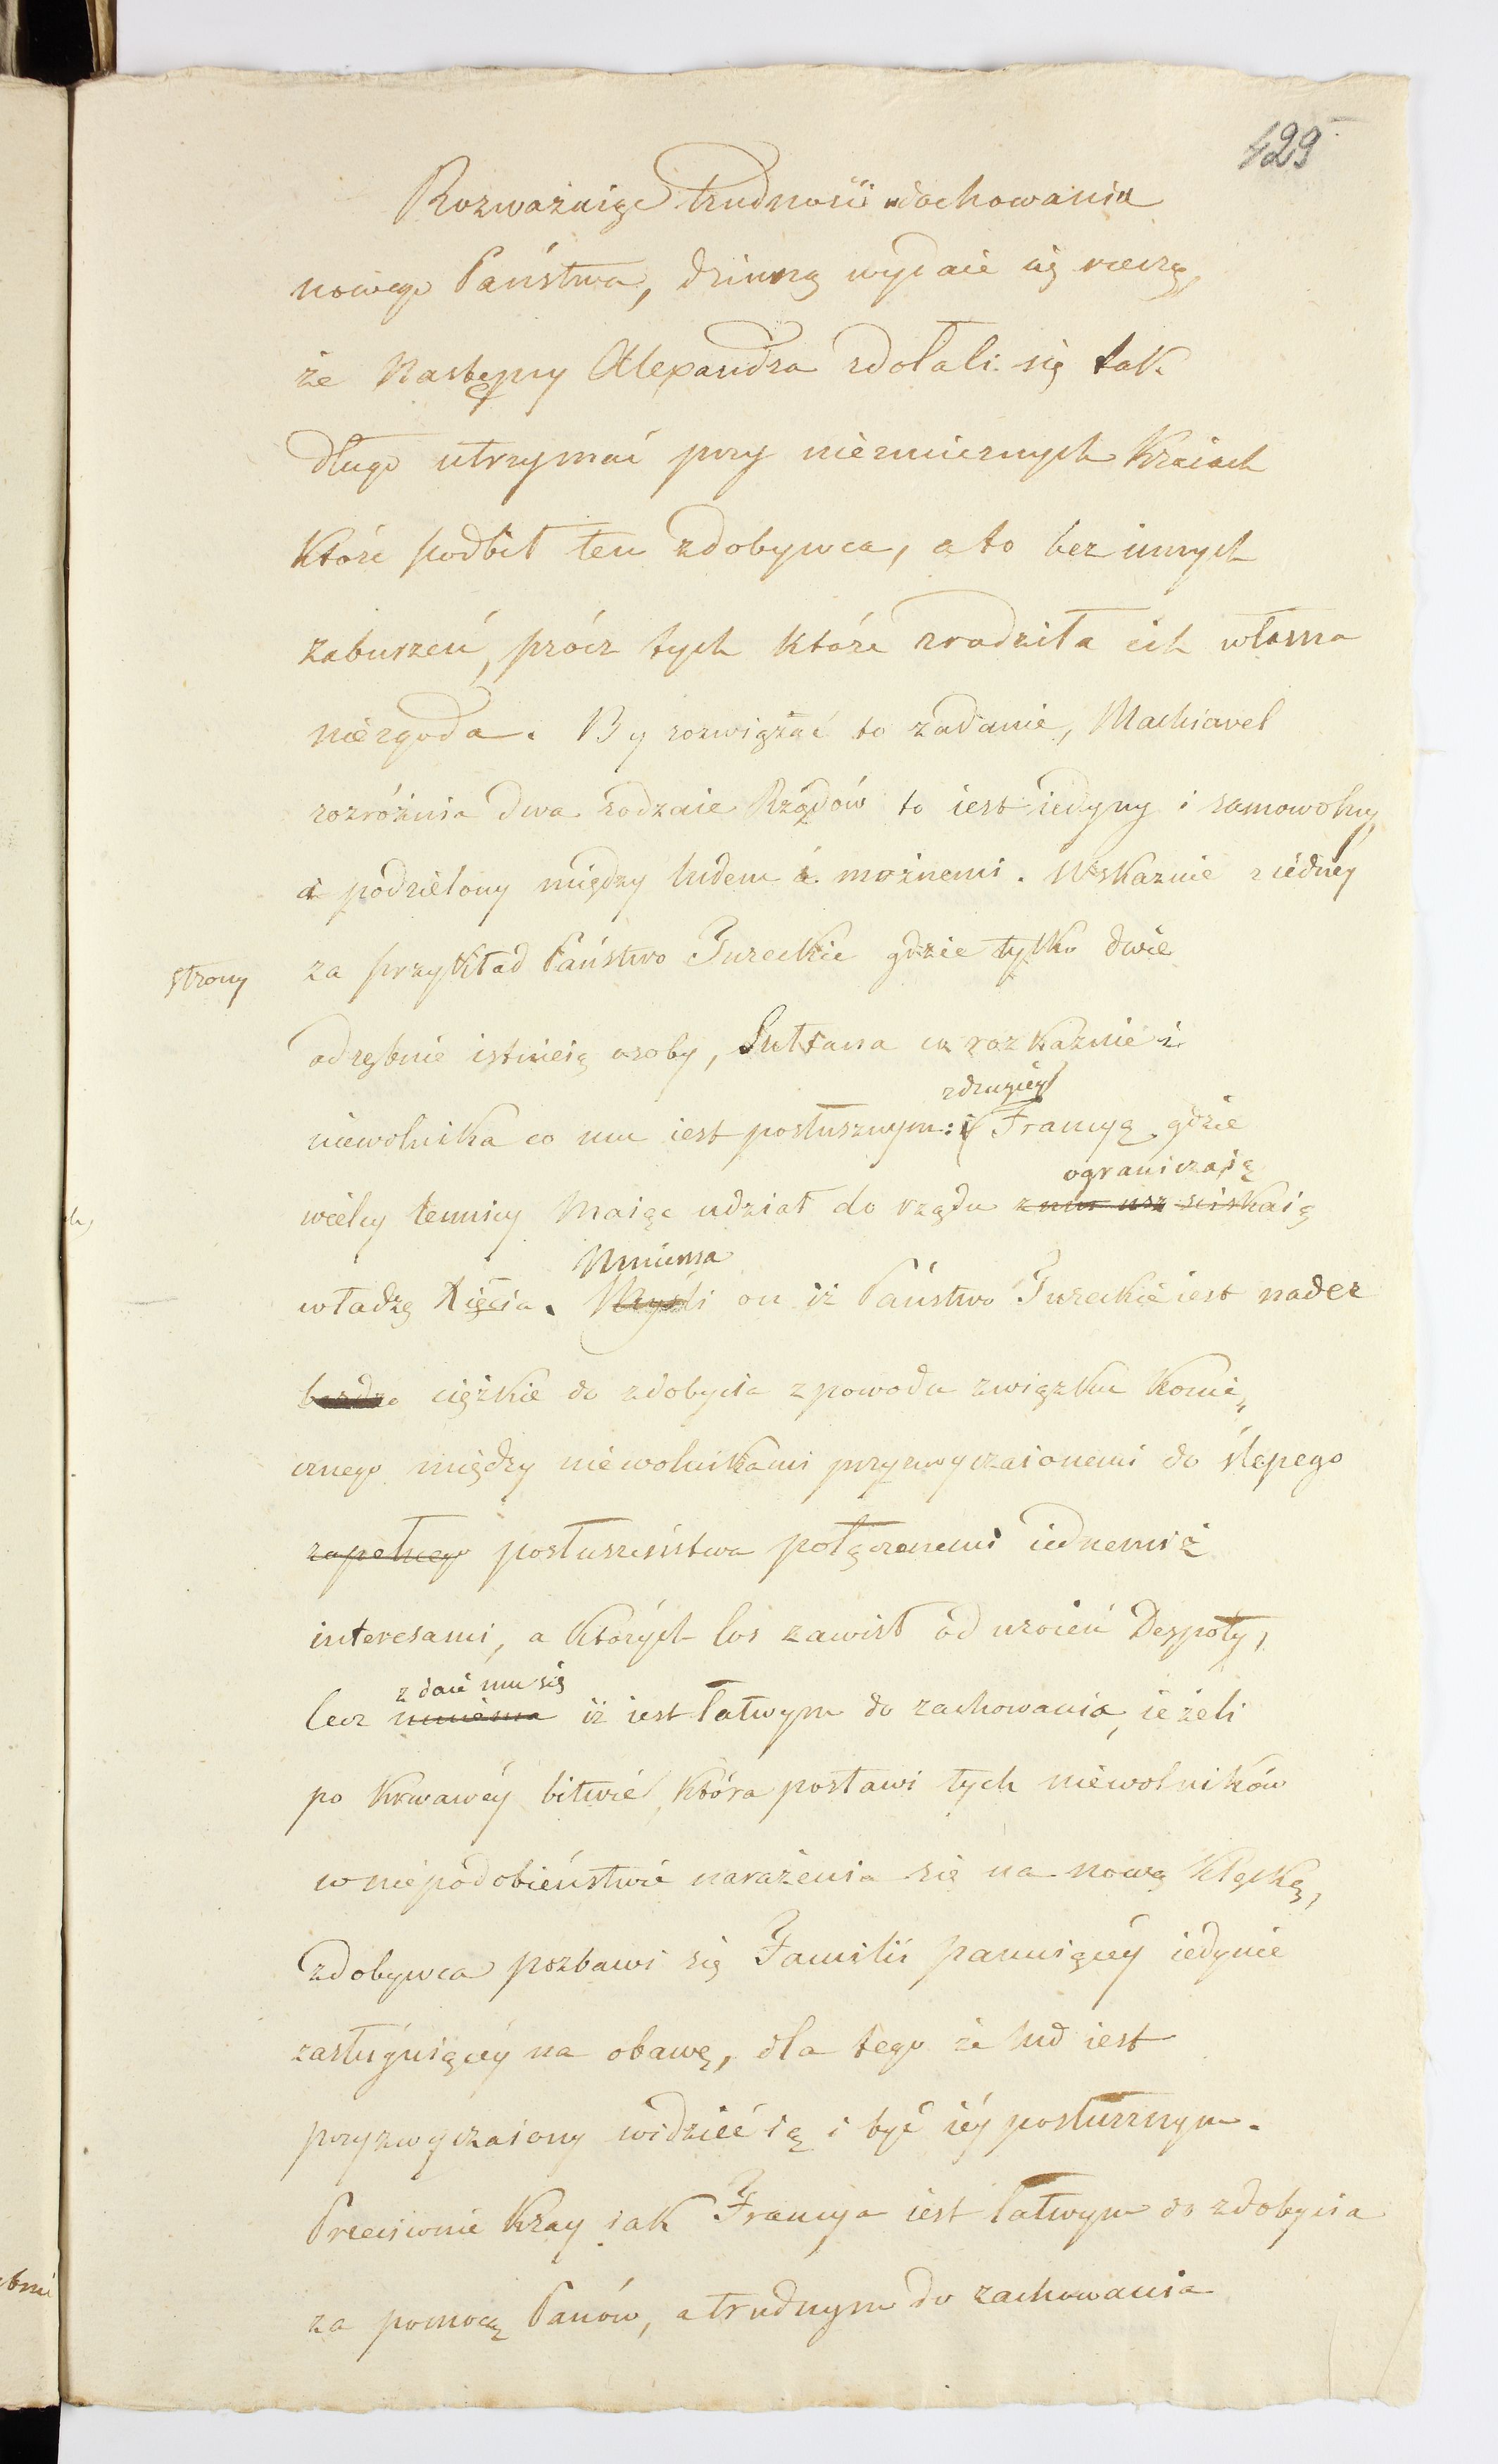 429
Rozważaiąc trudności dochowania
nowego Państwa, dziwną wydaie się rzeczą,
że Następcy Alexandra zdołali się tak
długo utrzymać przy niezmiernych Kraiach
Które podbił ten zdobywca, a to bez innych
zaburzeń, prócz tych które zrodziła ich własna
niezgoda. By rozwiązać to zadanie, Machiavel
rozróżnia dwa rodzaie Rządów to iest iedyny i samowolny,
a podzielony między ludem a możnemi. Wskazuie z iedney
strony za przykład Państwo Tureckie gdzie tylko dwie
odrębnie istnieią osoby, Sułtana co rozkazuie i
niewolnika co mu iest posłusznym: i zdrugiey Francyą gdzie
ograniczaią
wielcy lennicy Maiąc udział do rządu sciskaią
Mniema
władzę Xięcia. Myśli on iż Państwo Tureckie iest nader
bardzo ciężkie do zdobycia z powodu związku Konie„
cznego między niewolnikami przyzwyczaionemi do ślepego
zupełnego posłuszeństwa połączonemi iednemiż
interesami, a Których los zawisł od uroień Despoty,
zdaie mu się
lecz mniema iż iest łatwym do zachowania, ieżeli
po Krwawéy bitwie, Która postawi tych niewolników
w niepodobieństwie narażenia się na nową Klęskę,
zdobywca pozbawi się Familii panuiącéy iedynie
zasługuiącéy na obawę, dla tego że lud iest
przyzwyczaiony widzieć ią i być iéy posłusznym.
Przeciwnie Kray iak Francya iest łatwym do zdobycia
za pomocą Panów, a trudnym do zachowania